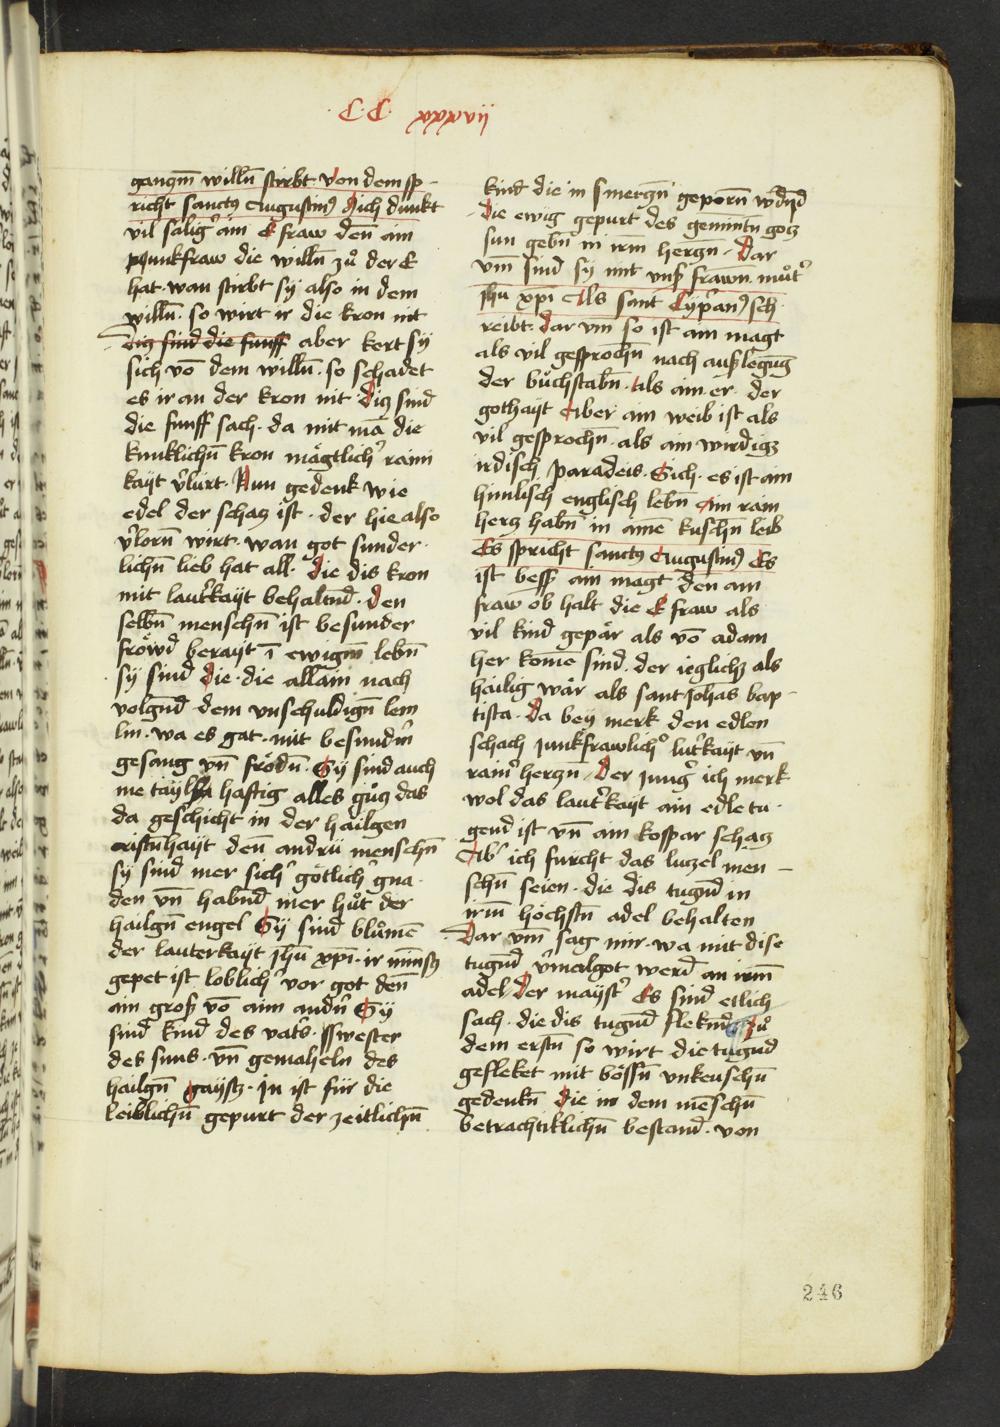 C C xxxvij
gangm̄ willn̄ stirbt. Von dem sp-
richt sanctꝰ Augustinꝰ Mich dunkt
vil sälig̾ ain E fraw den̄ ain
junkfraw die willn̄ zů der E
hat. wan stirbt sy also in dem
willn̄. so wirt ir die kron nit
Diz sind die funff aber kert sy
sich vō dem willn̄. so schadet
es ir an der kron nit Diz sind
die funff sach. da mit mā die
kunklichn̄ kron mägtlich̾ raini
kayt v̾lurt. Nun gedenk wie
edel der schaz ist. der hie also
v̾lorn̄ wirt. wan got sunder
lichn̄ lieb hat all. Die dis kron
mit laut̾kayt behaltnd̄. Den
selbn̄ menschn̄ ist besunder
fröwd̄ berayt ī ewigm̄ lebn̄
sy sind̄ die. die allain nach
volgnd̄ dem vnschuldign̄ lem
lin. wa es gat. mit besundrn̄
gesang vn̄ frödn̄. Sy sind auch
me tayl hafftig alles gůz das
da geschicht in der hailgen
cristn̄hayt den̄ andrü menschn̄
sy sind̄ mer sich̾ götlich̾ gna
den vn̄ habnd̄ mer hůt der
hailgn̄ engel Sy sind̄ blůmē
der lauterkayt jhū xp̄i. ir minstz
gepet ist loblich̾ vor got den̄
ain groß vō aim andn̄ Sy
sind̄ kind̄ des vats. swester
des suns. vn̄ gemaheln des
hailgn̄ gaystz. In ist für die
leiblichn̄ gepurt der zeitlichn̄
kind̄ die in smerzn̄ geporn̄ wd̄nd̄
Die ewig gepurt des gemintn̄ gotz
sun gebn̄ in irm herzn̄. Dar
vm̄ sind̄ sy mit vnsß frawn. můt̾
jhū xp̄i Als sant Cyp̾anꝰ sch
reibt. Dar vm so ist ain magt
als vil gesprochn̄ nach außlegūg
der bůchstabn̄. Als ain er. der
gothayt Aber ain weib ist als
vil gesprochn̄. als ain wirdigz
irdisch paradeis. Sich. es ist ain
himlisch englisch lebn̄ Ain rain
herz habn̄ in aimē kuschn̄ leib
Es spricht sanctꝰ Augustinꝰ Es
ist bess̾ ain magt den̄ ain
fraw ob halt die E fraw als
vil kind̄ gepär als vō adam
her komē sind. der ieglichz als
hailig wär als sant Johās bap-
tista. Da bey merk den edlen
schach junkfrawlich̾ lut̾kayt vn̄
rain̾ herzn̄. Der Jung̾ ich merk
wol das laut̾kayt ain edle tu
gend̄ ist vn̄ ain kospar schaz
Ab̾ ich furcht das luzel men-
schn̄ seien. die dis tugnd̄ in
irm̄ höchstn̄ adel behalten
Dar vm̄ sag mir. wa mit dise
tugnd̄ v̾mailgot werd̄ an irm̄
adel Der mayst̾ Es sind etlich
sach. die dis tugnd̄ fleknd̄ Zů
dem erstn̄ so wirt die tugnd
gefleket mit bössn̄ vnkeuschn̄
gedenkn̄ Die in dem mēschn̄
betrachtiklichn̄ bestand̄. von
246